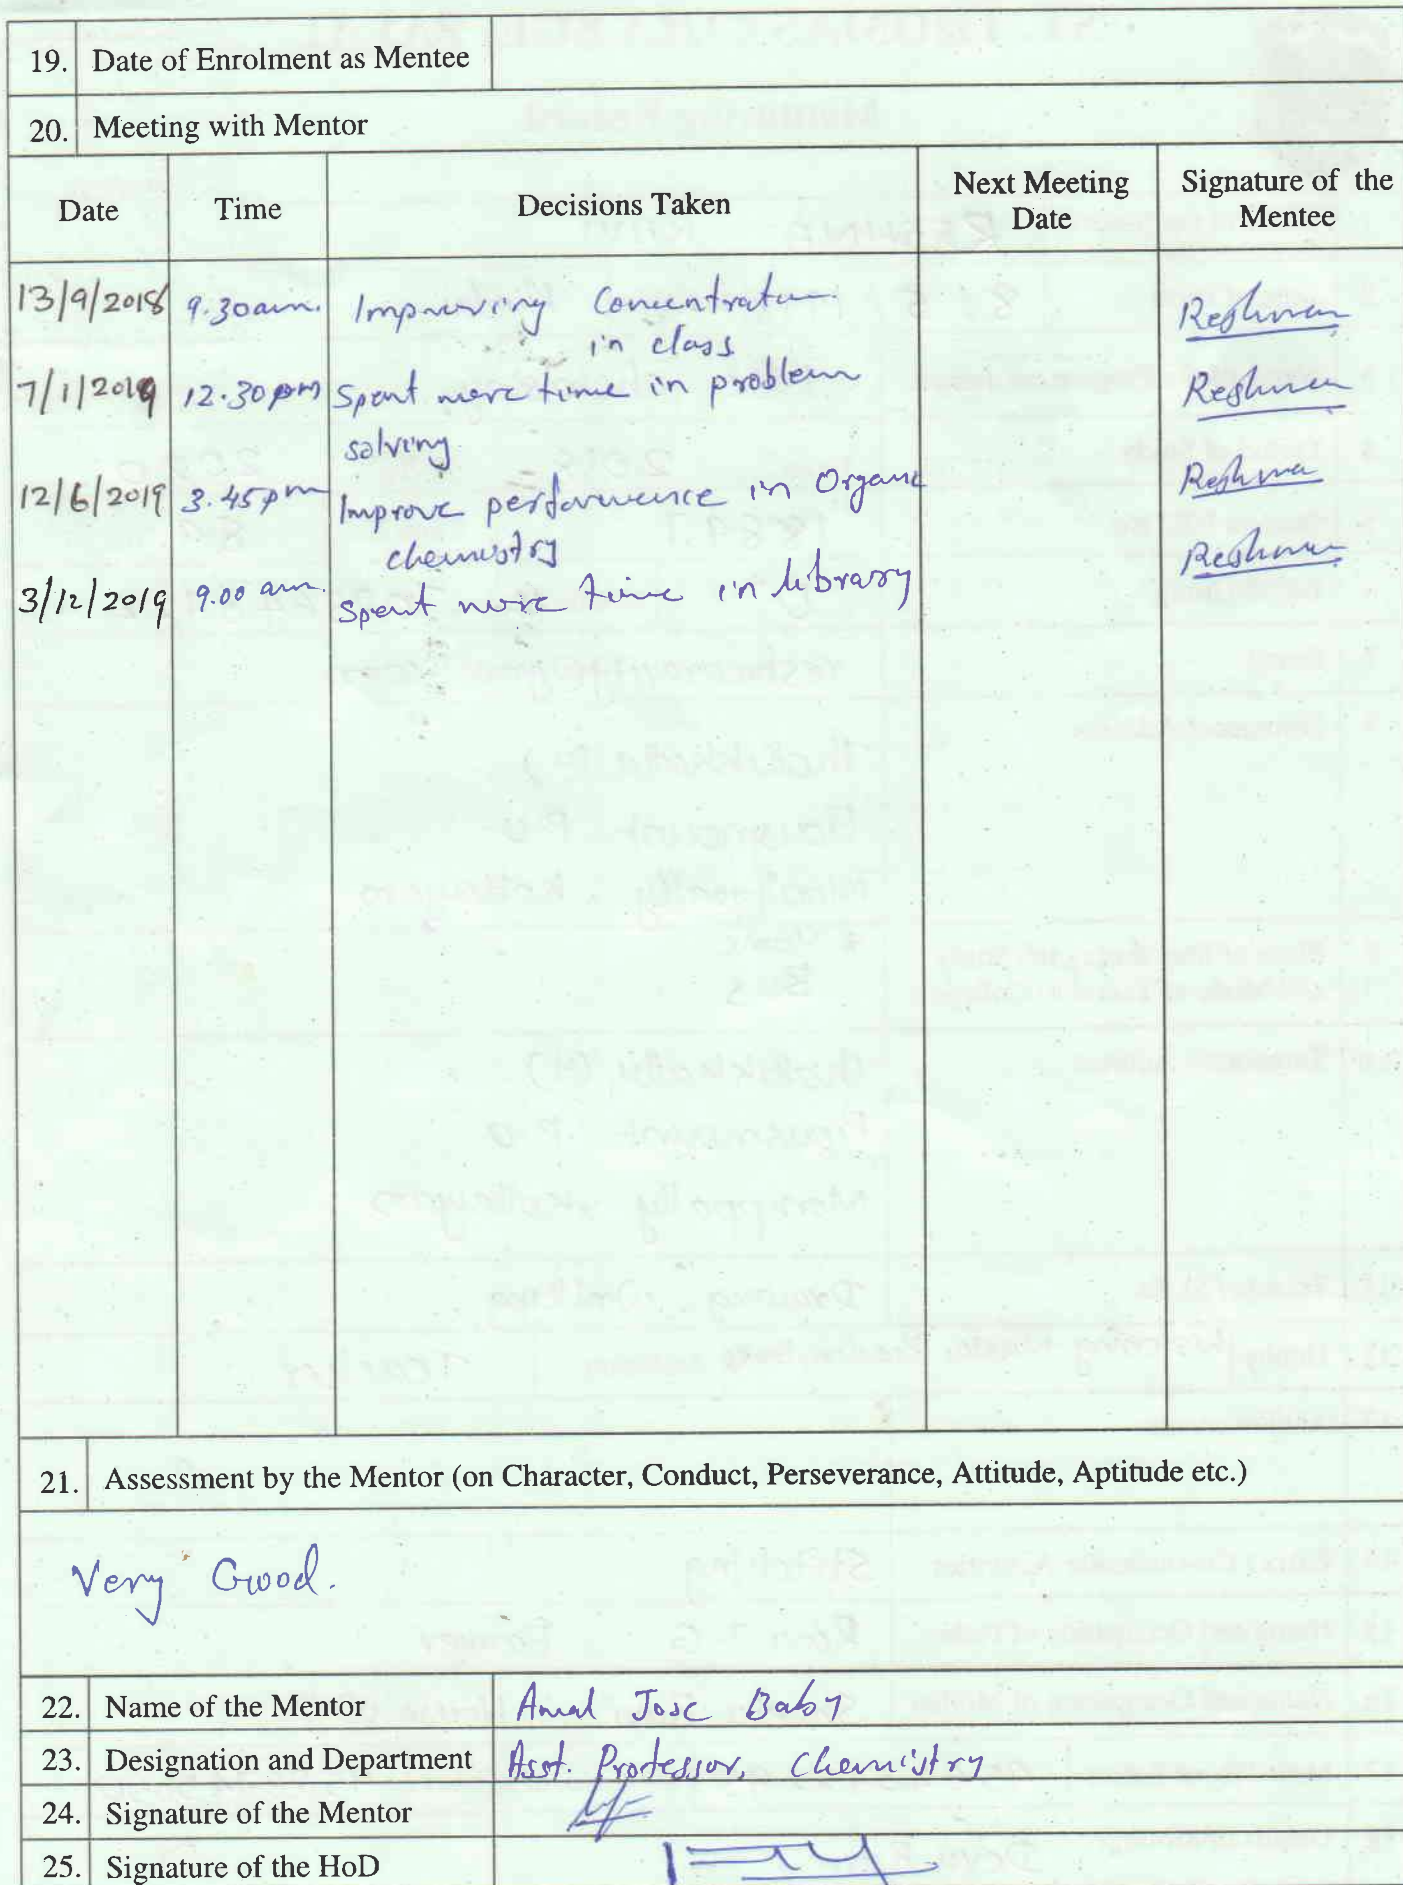 19. Date of Enrolment as Mentee
20. Meeting with Mentor
Date Time Decisions Taken Next Meeting Date Signature of the Mentee
13/9/2018 9.30am. Improving Concentration Reshma
in class
7/1/2019 12.30pm Spent more time in problem Reshma
solving
12/6/2019 3.45pm Improve performence in Organic Reshma
chemistry
3/12/2019 9.00 am. Spent more time in library Reshma
21. Assessment by the Mentor (on Character, Conduct, Perseverance, Attitude, Aptitude etc.)
Very Good.
22. Name of the Mentor Amal Jose Baby
23. Designation and Department Asst. Professor, Chemistry
24. Signature of the Mentor
25. Signature of the HoD